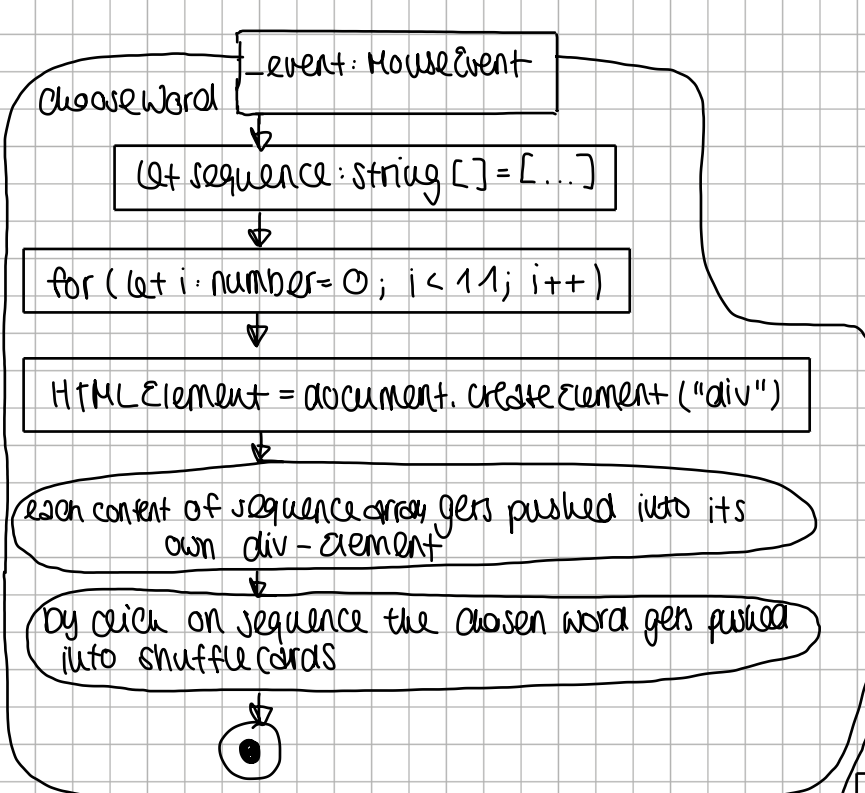 _event: MouseEvent
chooseWord
let sequence: string [] = [...]
for (let i: number= 0; i < 11; i++)
HTMLElement = document.createElement ("div")
each content of sequence array gets pushed into its
own div-element
by click on sequence the chosen word gets pushed
into shuffleCards